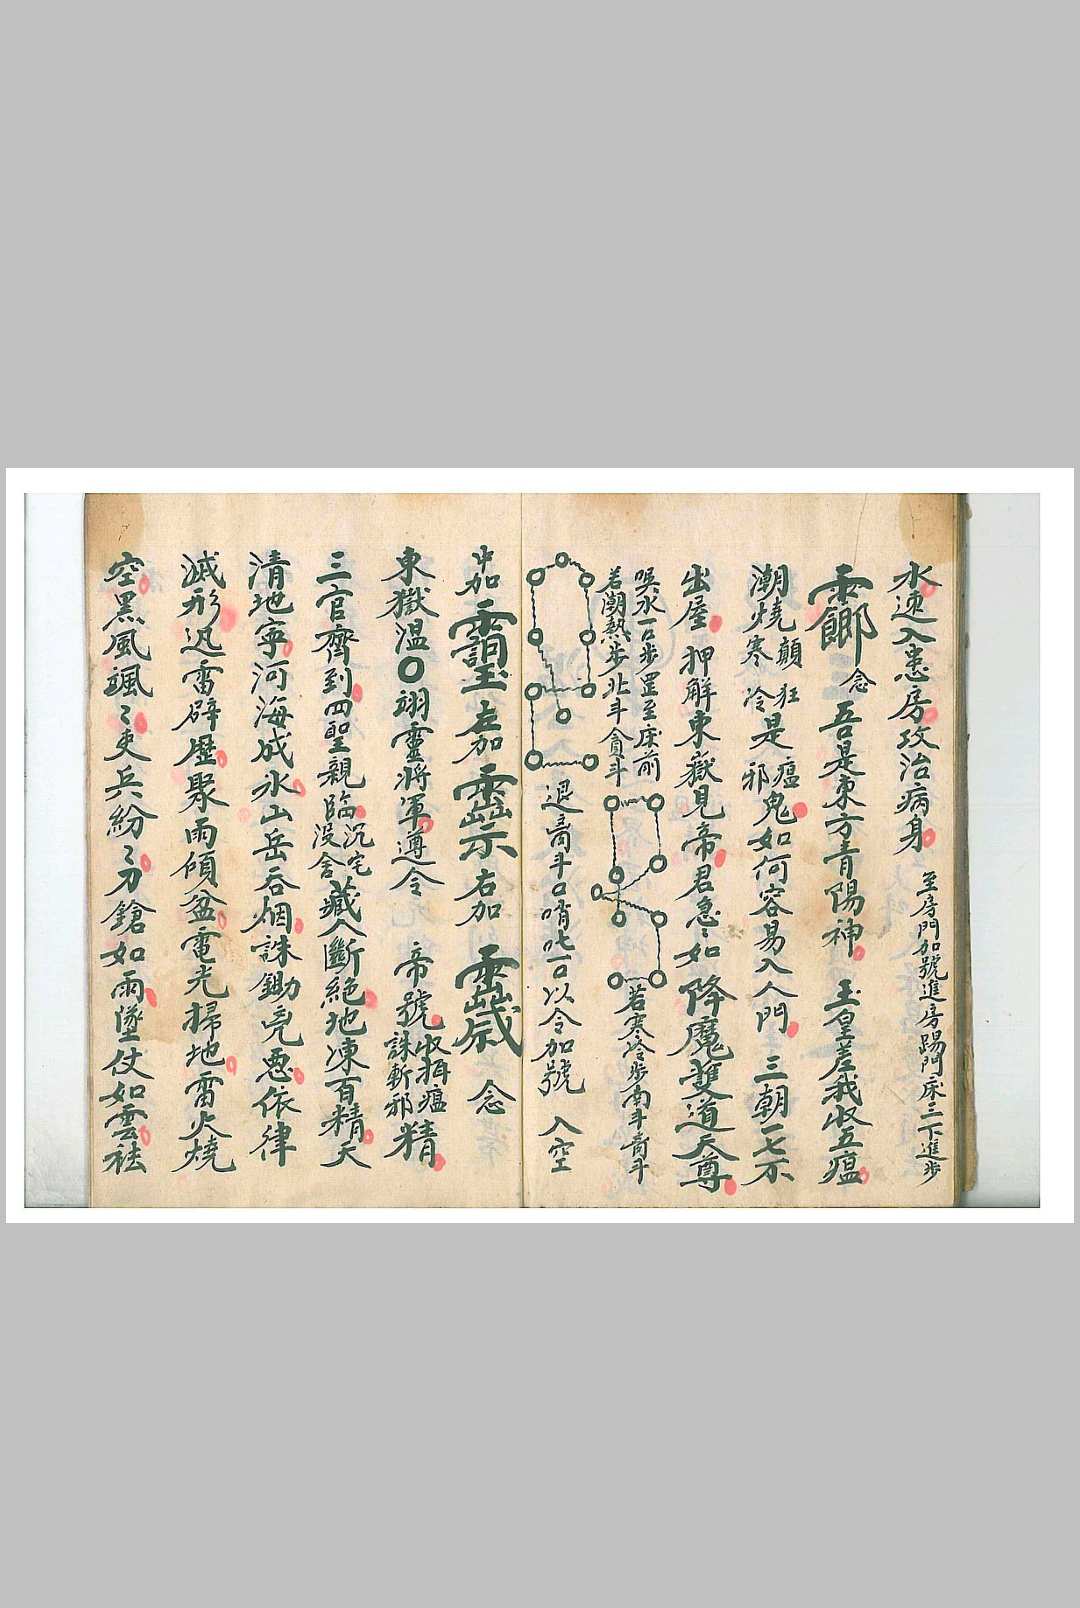 水速入患房攻治病身 至房門加號進房踢門床三下進步
念 吾是東方青陽神 玉皇差我收五瘟
潮燒寒顛狂冷是瘟邪鬼如何容易入人門 三朝一七不
出屋押解東嶽見帝君急〻如降魔雙道天尊
噀水一口步罡至床前
若潮熱步北斗貪斗
若寒冷步南斗
退 斗口哨吡一口以令加號 入空
中加 左加 右加 念
東嶽溫〇翊靈將軍遵令 帝號收捐瘟誅斬邪精
三官齊到四聖親臨沉宅沒舍藏人斷絕地凍百精天
清地寧河海成冰山岳吞烟誅鋤兇惡依律
滅形迅雷霹靂聚雨傾盆電光掃地雷火燒
空黑風颯〻吏兵紛〻刀鎗如雨墜仗如雲祛